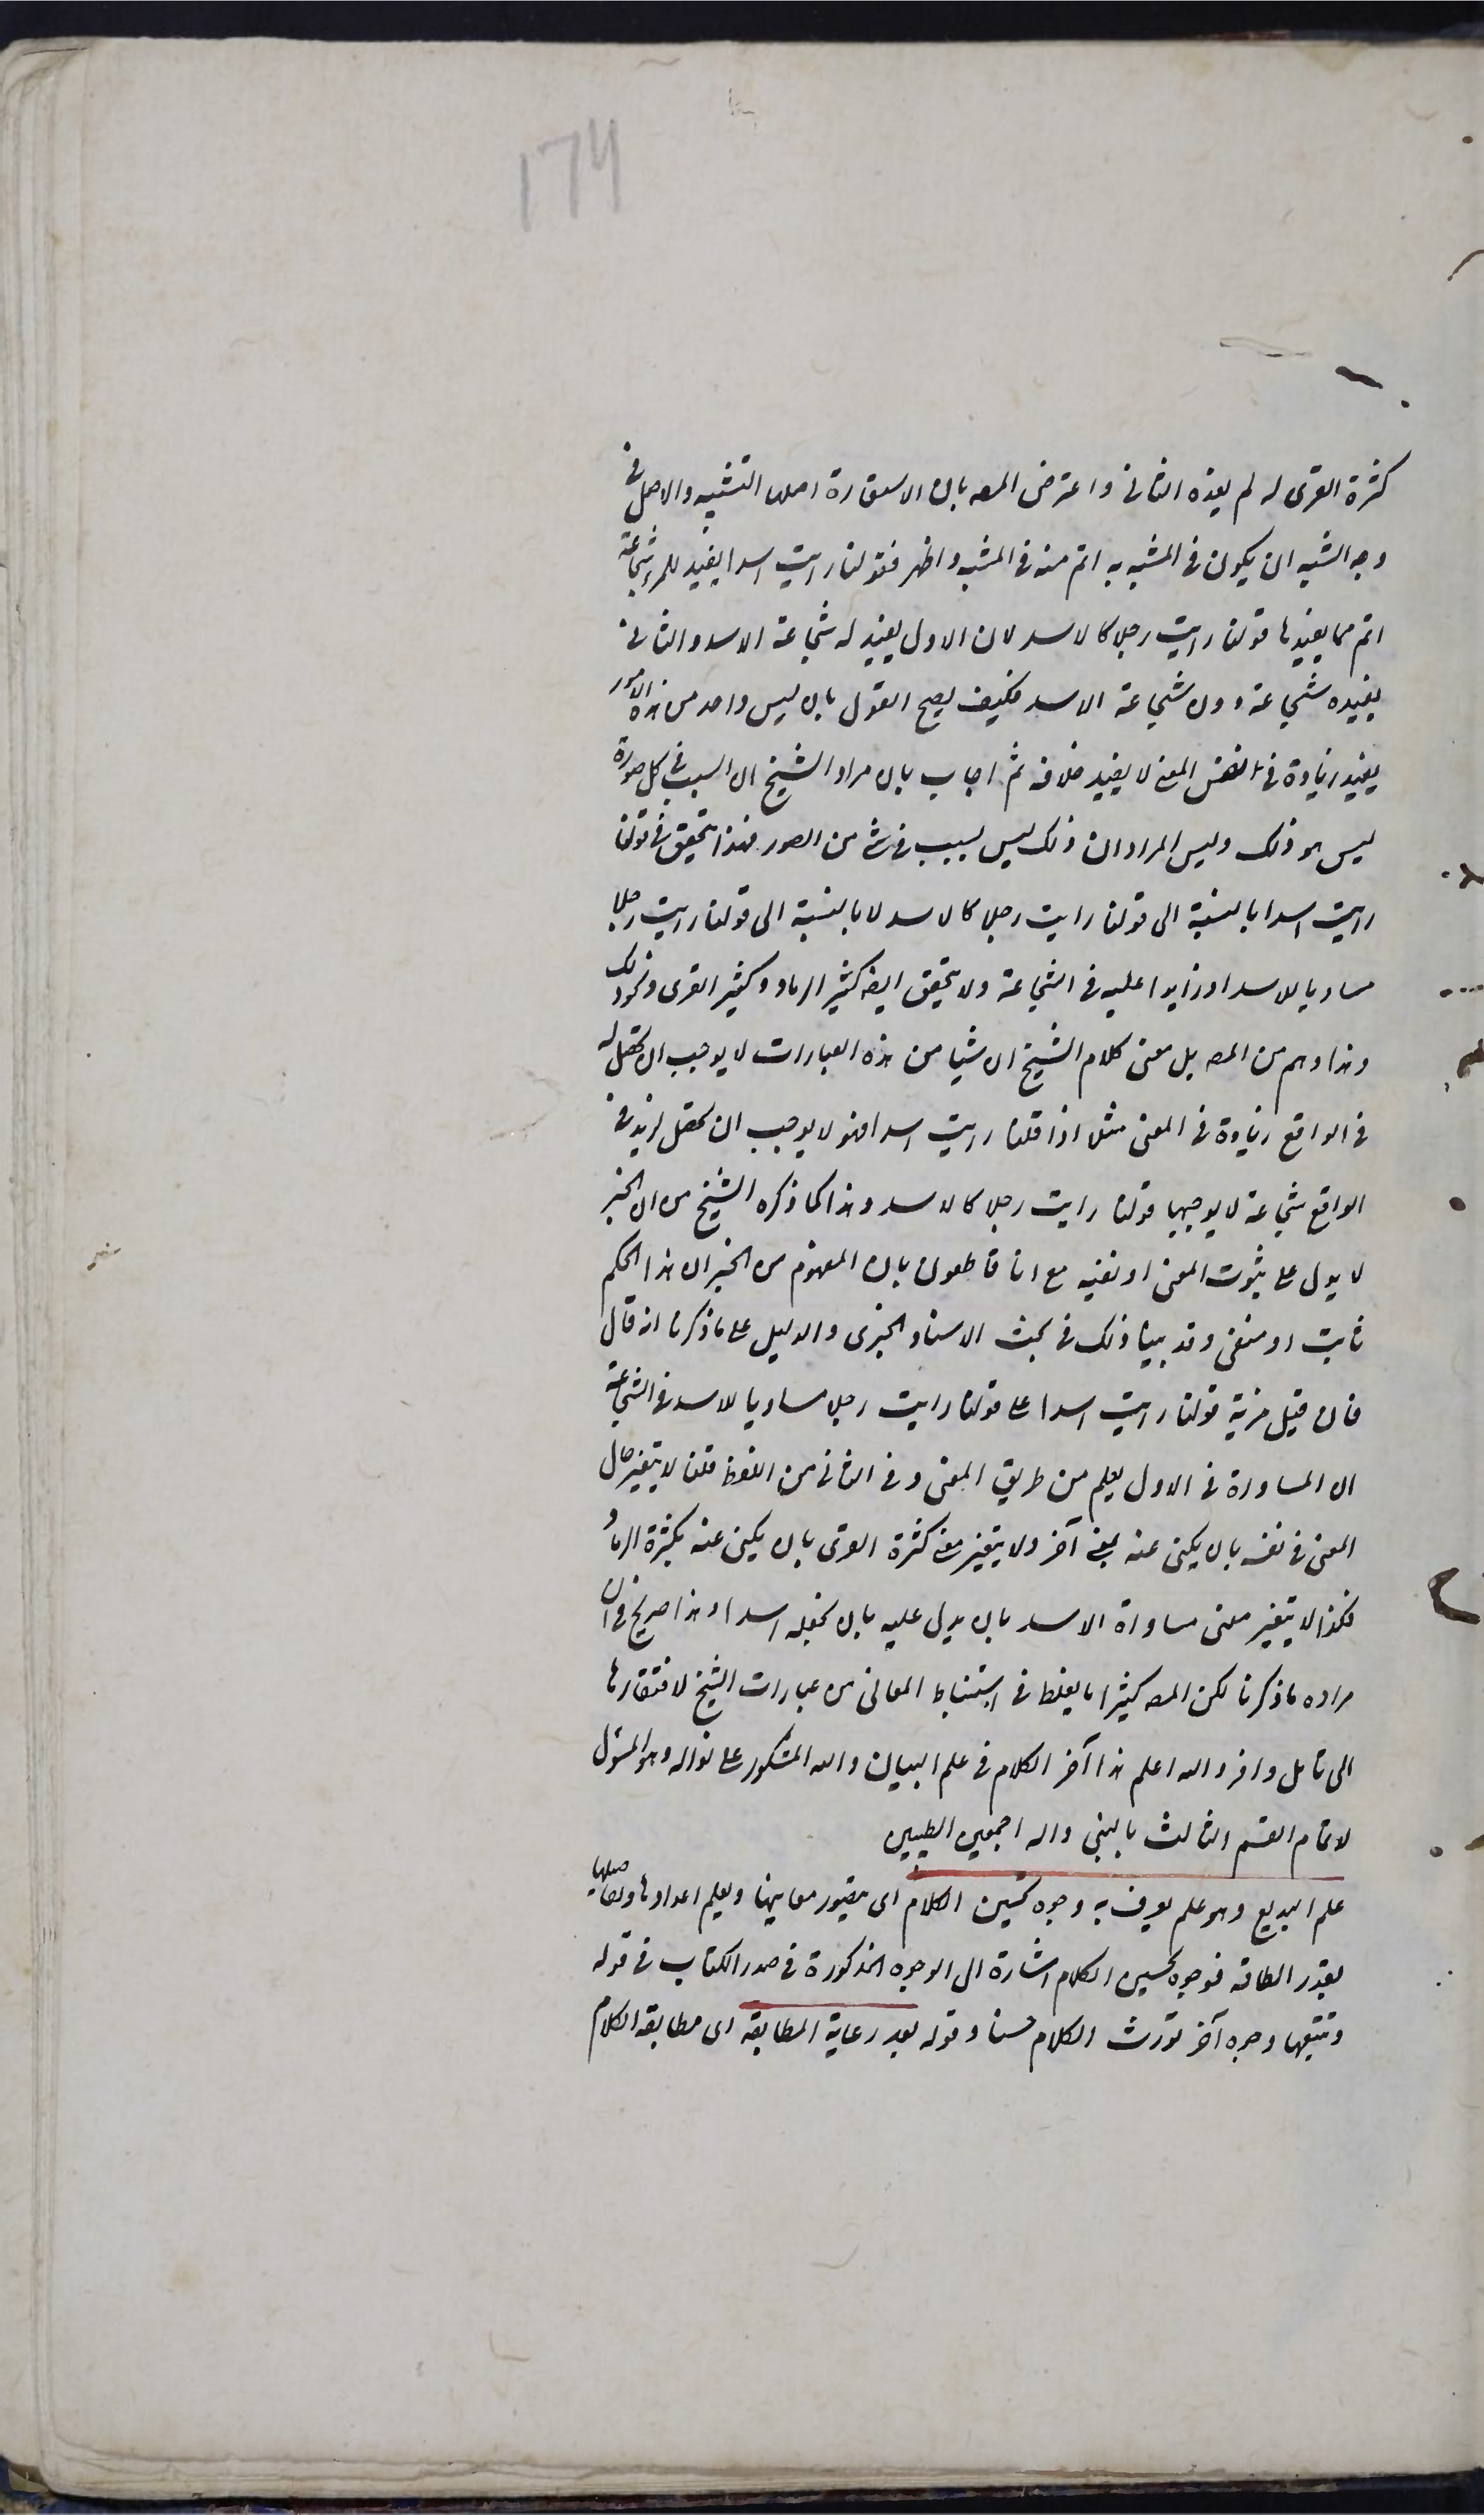 174
كثرة القرى له لم يفده الثانى واعترض المصه بان الاستعارة اصلها التشبيه والاصل فى
وجه الشبه ان يكون فى المشبه به اتم منه فى المشبه واظهر فقولنا رايت اسدا يفيد للمرء شجاعة
اتم مما يفيدها قولنا رايت رجلا كالاسد لان الاول يفيد له شجاعة الاسد والثانى
يفيده شجاعة دون شجاعة الاسد فكيف يصح القول بان ليس واحد من هذه الامور
يفيد زيادة فى نفس المعنى لا يفيد خلافه ثم اجاب بان مراد الشيخ ان السبب فى كل صورة
ليس هو ذلك وليس المراد ان ذلك ليس بسبب فى شئ من الصور فهذا يتحقق فى قولنا
رايت اسدا بالنسبة الى قولنا رايت رجلا كالاسد لا بالنسبة الى قولنا رايت رجلا
مساويا للاسد او زايدا عليه فى الشجاعة ولا يتحقق ايضه كثير الرماد وكثير القرى ونحو ذلك
وهذا وهم من المصه بل معنى كلام الشيخ ان شيا من هذه العبارات لا يوجب ان يحصل له
فى الواقع زيادة فى المعنى مثلا اذا قلنا رايت اسدا فهو لا يوجب ان يحصل لزيد فى
الواقع شجاعة لا يوجبها قولنا رايت رجلا كالاسد وهذا كما ذكره الشيخ من ان الخبر
لا يدل على ثبوت المعنى او نفيه مع انا قاطعون بان المفهوم من الخبر ان هذا الحكم
ثابت او منفى وقد بينا ذلك فى بحث الاسناد الخبرى والدليل على ما ذكرنا انه قال
فان قيل مزية قولنا رايت اسدا على قولنا رايت رجلا مساويا للاسد فى الشجاعة
ان المساوة فى الاول يعلم من طريق المعنى وفى الثانى من اللفظ قلنا لا يتغير حال
المعنى فى نفسه بان يكنى عنه بمعنى آخر ولا يتغير معنى كثرة القرى بان يكنى عنه بكثرة الرماد
فكذا لا يتغير معنى مساواة الاسد بان يدل عليه بان تجعله اسدا وهذا صريح فى ان
مراده ما ذكرنا لكن المصه كثيرا ما يغلط فى استنباط المعانى من عبارات الشيخ لافتقارها
الى تامل وافر والله اعلم هذا آخر الكلام فى علم البيان والله المشكور على نواله وهو المسؤل
لاتمام القسم الثالث بالنبى واله اجمعين الطيبين
علم البديع وهو علم يعرف به وجوه تحسين الكلام اى يتصور معاينها ويعلم اعدادها وتفاصيلها
بقدر الطاقة فوجوه تحسين الكلام اشارة الى الوجوه المذكورة فى صدر الكتاب فى قوله
وتتبعها وجوه آخر تورث الكلام حسنا وقوله بعد رعاية المطابقة اى مطابقة الكلام